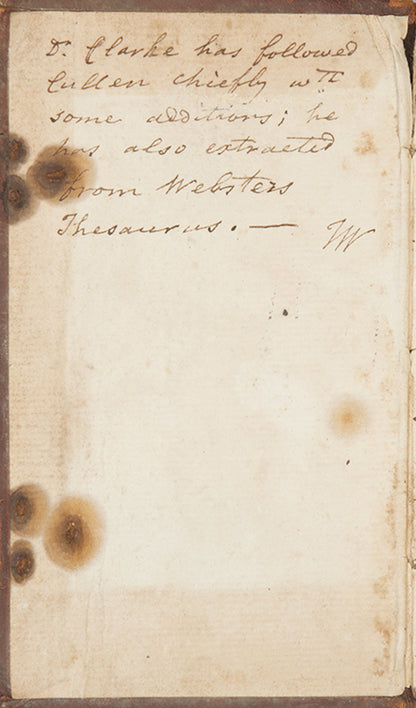 Dr. Clarke has followed
Cullen chiefly wth
some additions; he
has also extracted
from Websters
Thesaurus. — JW